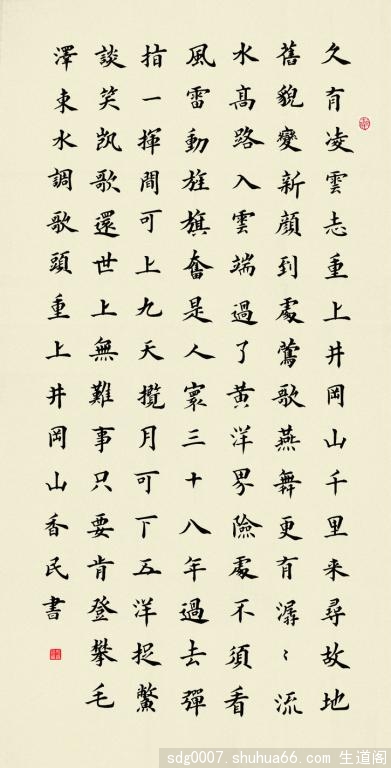 久有凌雲志重上井岡山千里来尋故地
舊貌變新顔到處鶯歌燕舞更有潺〻流
水高路入雲端過了黄洋界險處不須看
風雷動旌旗奮是人寰三十八年過去彈
指一揮間可上九天攬月可下五洋捉鱉
談笑凯歌還世上無難事只要肯登攀毛
澤東水調歌頭重上井岡山香民書
sdg0007.shuhua66.com 生道阁